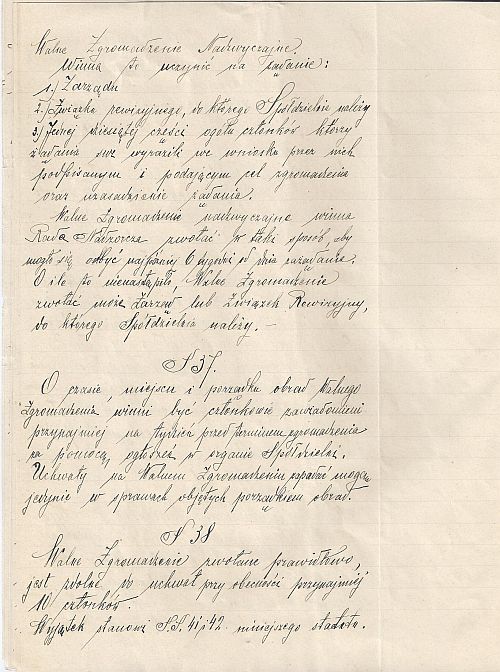 Walne Zgromadzenie Nadzwyczajne.
Winna to uczynić na żądanie:
1.) Zarządu
2.) Związku rewizyjnego, do którego Spółdzielnia należy
3) Jednej dziesiątej części ogółu członków którzy
żądania swe wyrazili we wniosku przez nich
podpisanym i podającym cel zgromadzenia
oraz uzasadzienie żądania.
Walne Zgromadzenie nadzwyczajne winna
Rada Nadzorcza zwołać w taki sposób, aby
mogło się odbyć najpóźniej 6 tygodni od dnia zażądania.
O ile to nienastąpiło, Walne Zgromadzenie
zwołać może Zarząd lub Związek Rewizyjny,
do którego Spółdzielnia należy. —
§ 37.
O czasie, miejscu i porządku obrad Walnego
Zgromadzenia winni być członkowie zawiadomieni
przynajmniej na tydzień przed terminem zgromadzenia
za pomocą ogłoszeń w organie Spółdzielni.
Uchwały na Walnem Zgromadzeniu zapadać mogą
jedynie w sprawach objętych porządkiem obrad.
§ 38
Walne Zgromadzenie zwołane prawidłowo,
jest zdolne do uchwał przy obecności przynajmniej
10 członków.
Wyjątek stanowi §.§. 41 i 42. niniejszego statutu.